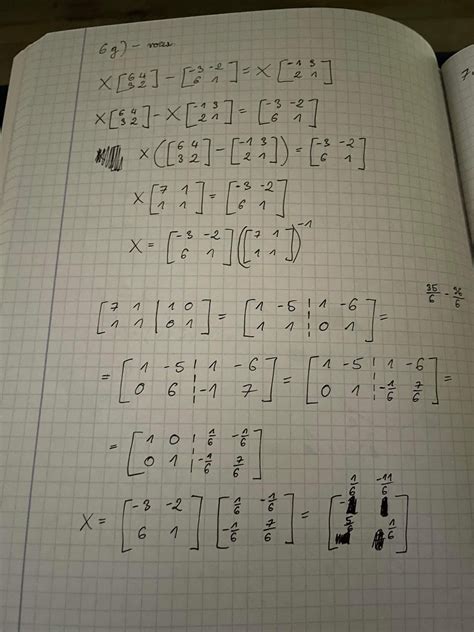 6g) -
X[6 4; 3 2] - [-3 -2; 6 1] = X[-1 3; 2 1]
X[6 4; 3 2] - X[-1 3; 2 1] = [-3 -2; 6 1]
X([6 4; 3 2] - [-1 3; 2 1]) = [-3 -2; 6 1]
X[7 1; 1 1] = [-3 -2; 6 1]
X = [-3 -2; 6 1]([7 1; 1 1])^-1
35/6 - 36/6
[7 1 | 1 0; 1 1 | 0 1] = [1 -5 | 1 -6; 1 1 | 0 1] =
= [1 -5 | 1 -6; 0 6 | -1 7] = [1 -5 | 1 -6; 0 1 | -1/6 7/6] =
= [1 0 | 1/6 -1/6; 0 1 | -1/6 7/6]
X = [-3 -2; 6 1] [1/6 -1/6; -1/6 7/6] = [-1/6 -11/6; 5/6 1/6]
7